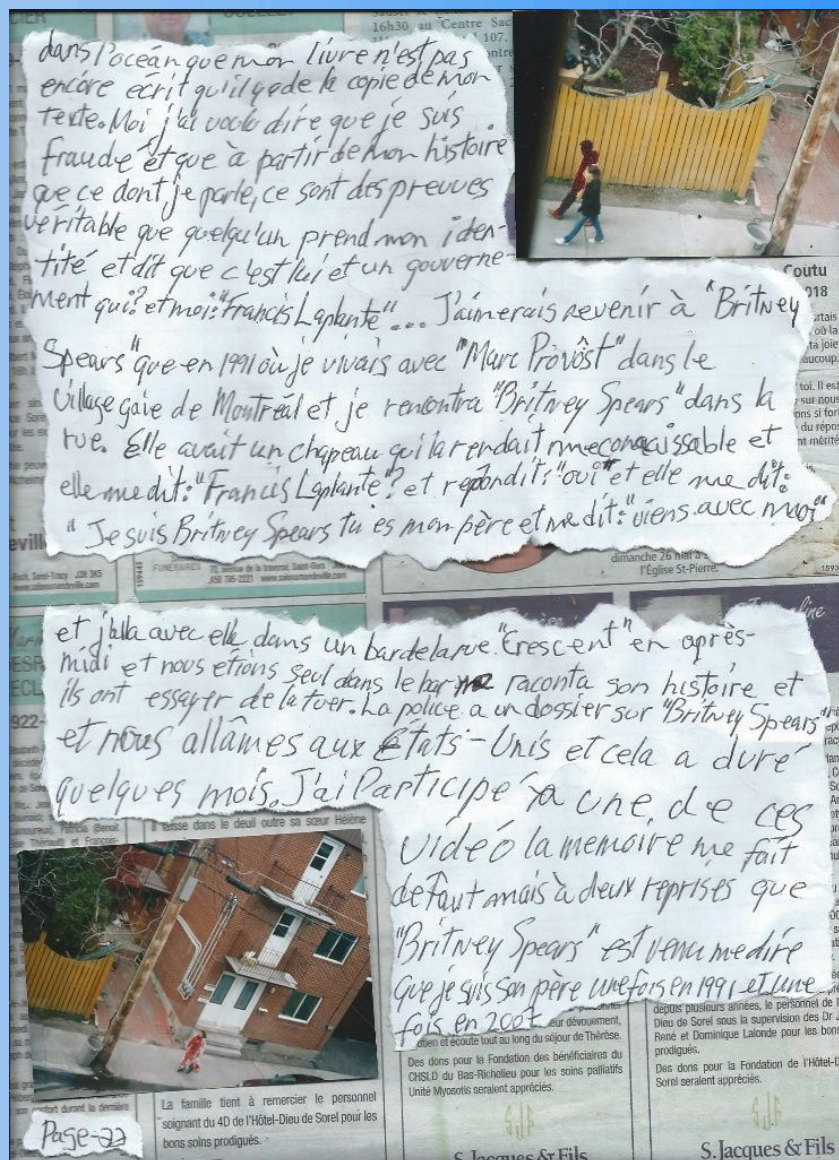 16h30 au Centre Sac
107.
dans l'océan que mon livre n'est pas
encore écrit qu'il y a de la copie de mon
texte. Moi j'ai voulu dire que je suis
fraudé et que à partir de mon histoire
que ce dont je parle, ce sont des preuves
véritable que quelqu'un prend mon iden-
tité et dit que c'est lui et un gouverne-
ment qui? et moi: "Francis Laplante"... J'aimerais revenir à "Britney
Spears" que en 1991 où je vivais avec "Marc Provôst" dans le
village gaie de Montréal et je rencontra "Britney Spears" dans la
rue. Elle avait un chapeau qui la rendait méconnaissable et
elle me dit: "Francis Laplante"? et répondit: "oui" et elle me dit:
"Je suis Britney Spears tu es mon père et me dit: "viens avec moi"
Coutu
018
ta joie
aucoup.
toi. Il est
sur nous
ons si fort
du repos
nt mérité
dimanche 26 mai à
l'Église St-Pierre.
FUNÉRAIRES
450 785-2221
159445
et j'alla avec elle dans un bar de la rue. "Crescent" en après-
midi et nous étions seul dans le bar me raconta son histoire et
ils ont essayer de la tuer. La police a un dossier sur "Britney Spears"
et nous allâmes aux États-Unis et cela a duré
quelques mois. J'ai Participé à une de ces
vidéo la memoire me fait
defaut mais à deux reprises que
"Britney Spears" est venu me dire
que je suis son père une fois en 1991 et une
fois en 2007
922-
Il laisse dans le deuil outre sa sœur Hélène
La famille tient à remercier le personnel
soignant du 4D de l'Hôtel-Dieu de Sorel pour les
bons soins prodigués.
eur dévouement,
tien et écoute tout au long du séjour de Thérèse.
Des dons pour la Fondation des bénéficiaires du
CHSLD du Bas-Richelieu pour les soins palliatifs
Unité Myosotis seraient appréciés.
S. Jacques & Fils
depuis plusieurs années, le personnel de l
Dieu de Sorel sous la supervision des Dr J
René et Dominique Lalonde pour les bons
prodigués.
Des dons pour la Fondation de l'Hôtel-D
Sorel seraient appréciés.
S. Jacques & Fils
Page-22